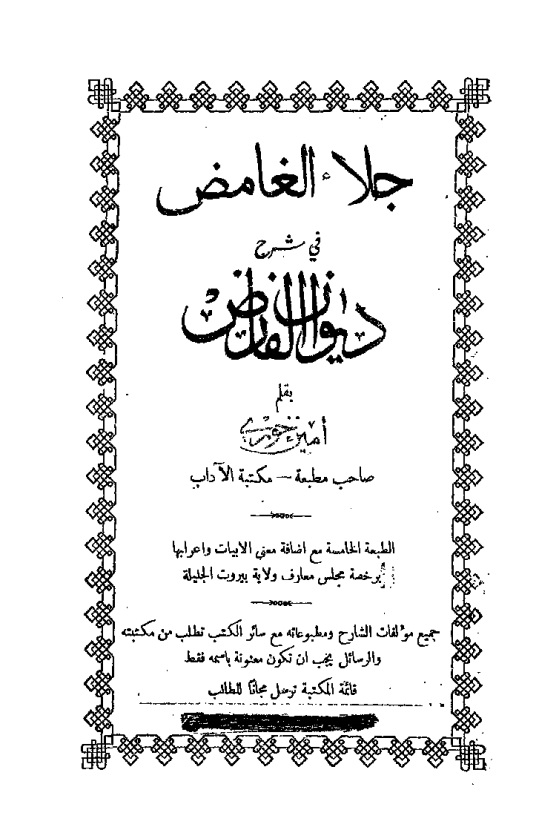 جلاء الغامض
في شرح
ديوان الفارض
بقلم
أمين خوري
صاحب مطبعة — مكتبة الآداب
الطبعة الخامسة مع اضافة معنى الابيات واعرابها
برخصة مجلس معارف ولاية بيروت الجليلة
جميع مؤلفات الشارح ومطبوعاته مع سائر الكتب تطلب من مكتبته
والرسائل يجب ان تكون معنونة باسمه فقط
قائمة المكتبة ترسل مجاناً للطالب